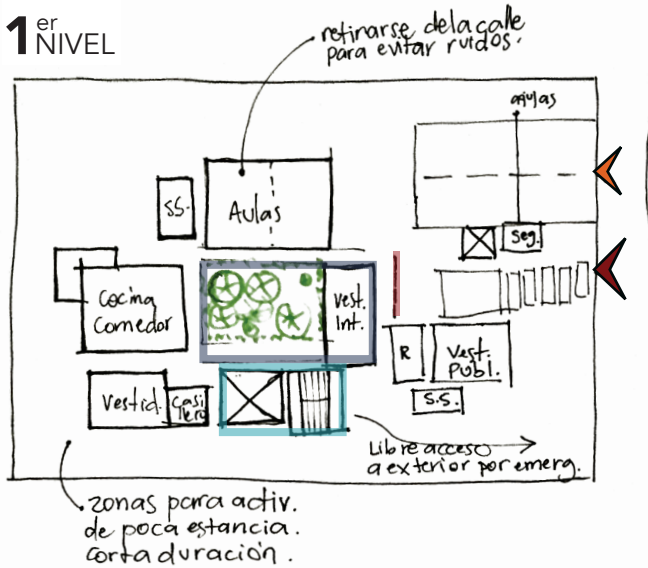 1er NIVEL
retirarse de la calle
para evitar ruidos.
agujas
SS.
Aulas
Seg.
Cocina
Comedor
Vest.
Int.
R
Vest.
Publ.
S.S.
Vestid.
Casi
llero
Libre acceso
a exterior por emerg.
zonas para activ.
de poca estancia.
corta duración.